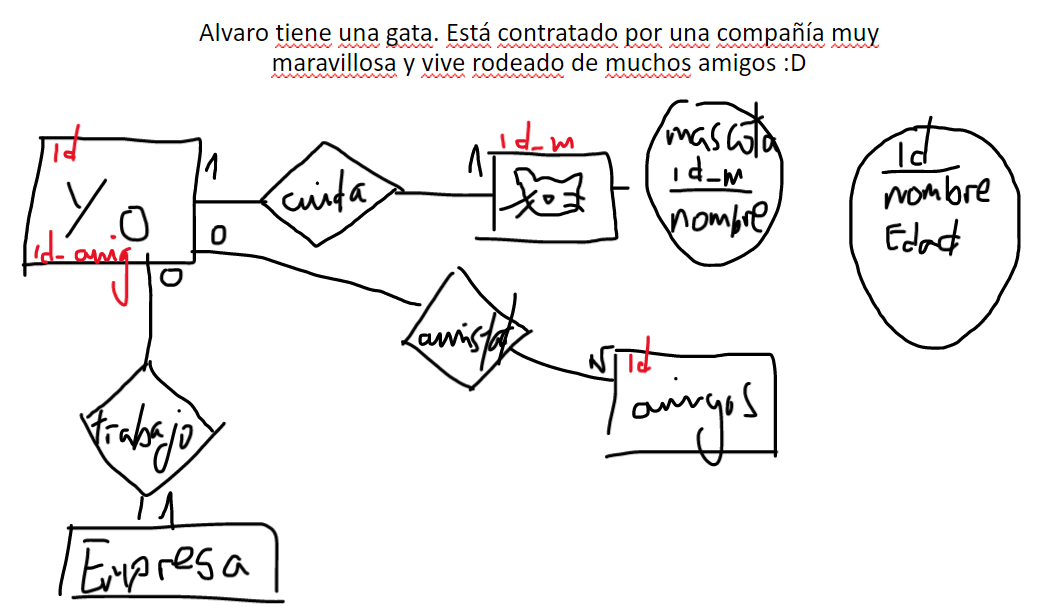 Alvaro tiene una gata. Está contratado por una compañía muy
maravillosa y vive rodeado de muchos amigos :D
id
YO
id_amig
1
cuida
1
id_m
mascota
id_m
nombre
id
nombre
Edad
0
0
amistad
N
id
amigos
trabajo
1
Empresa